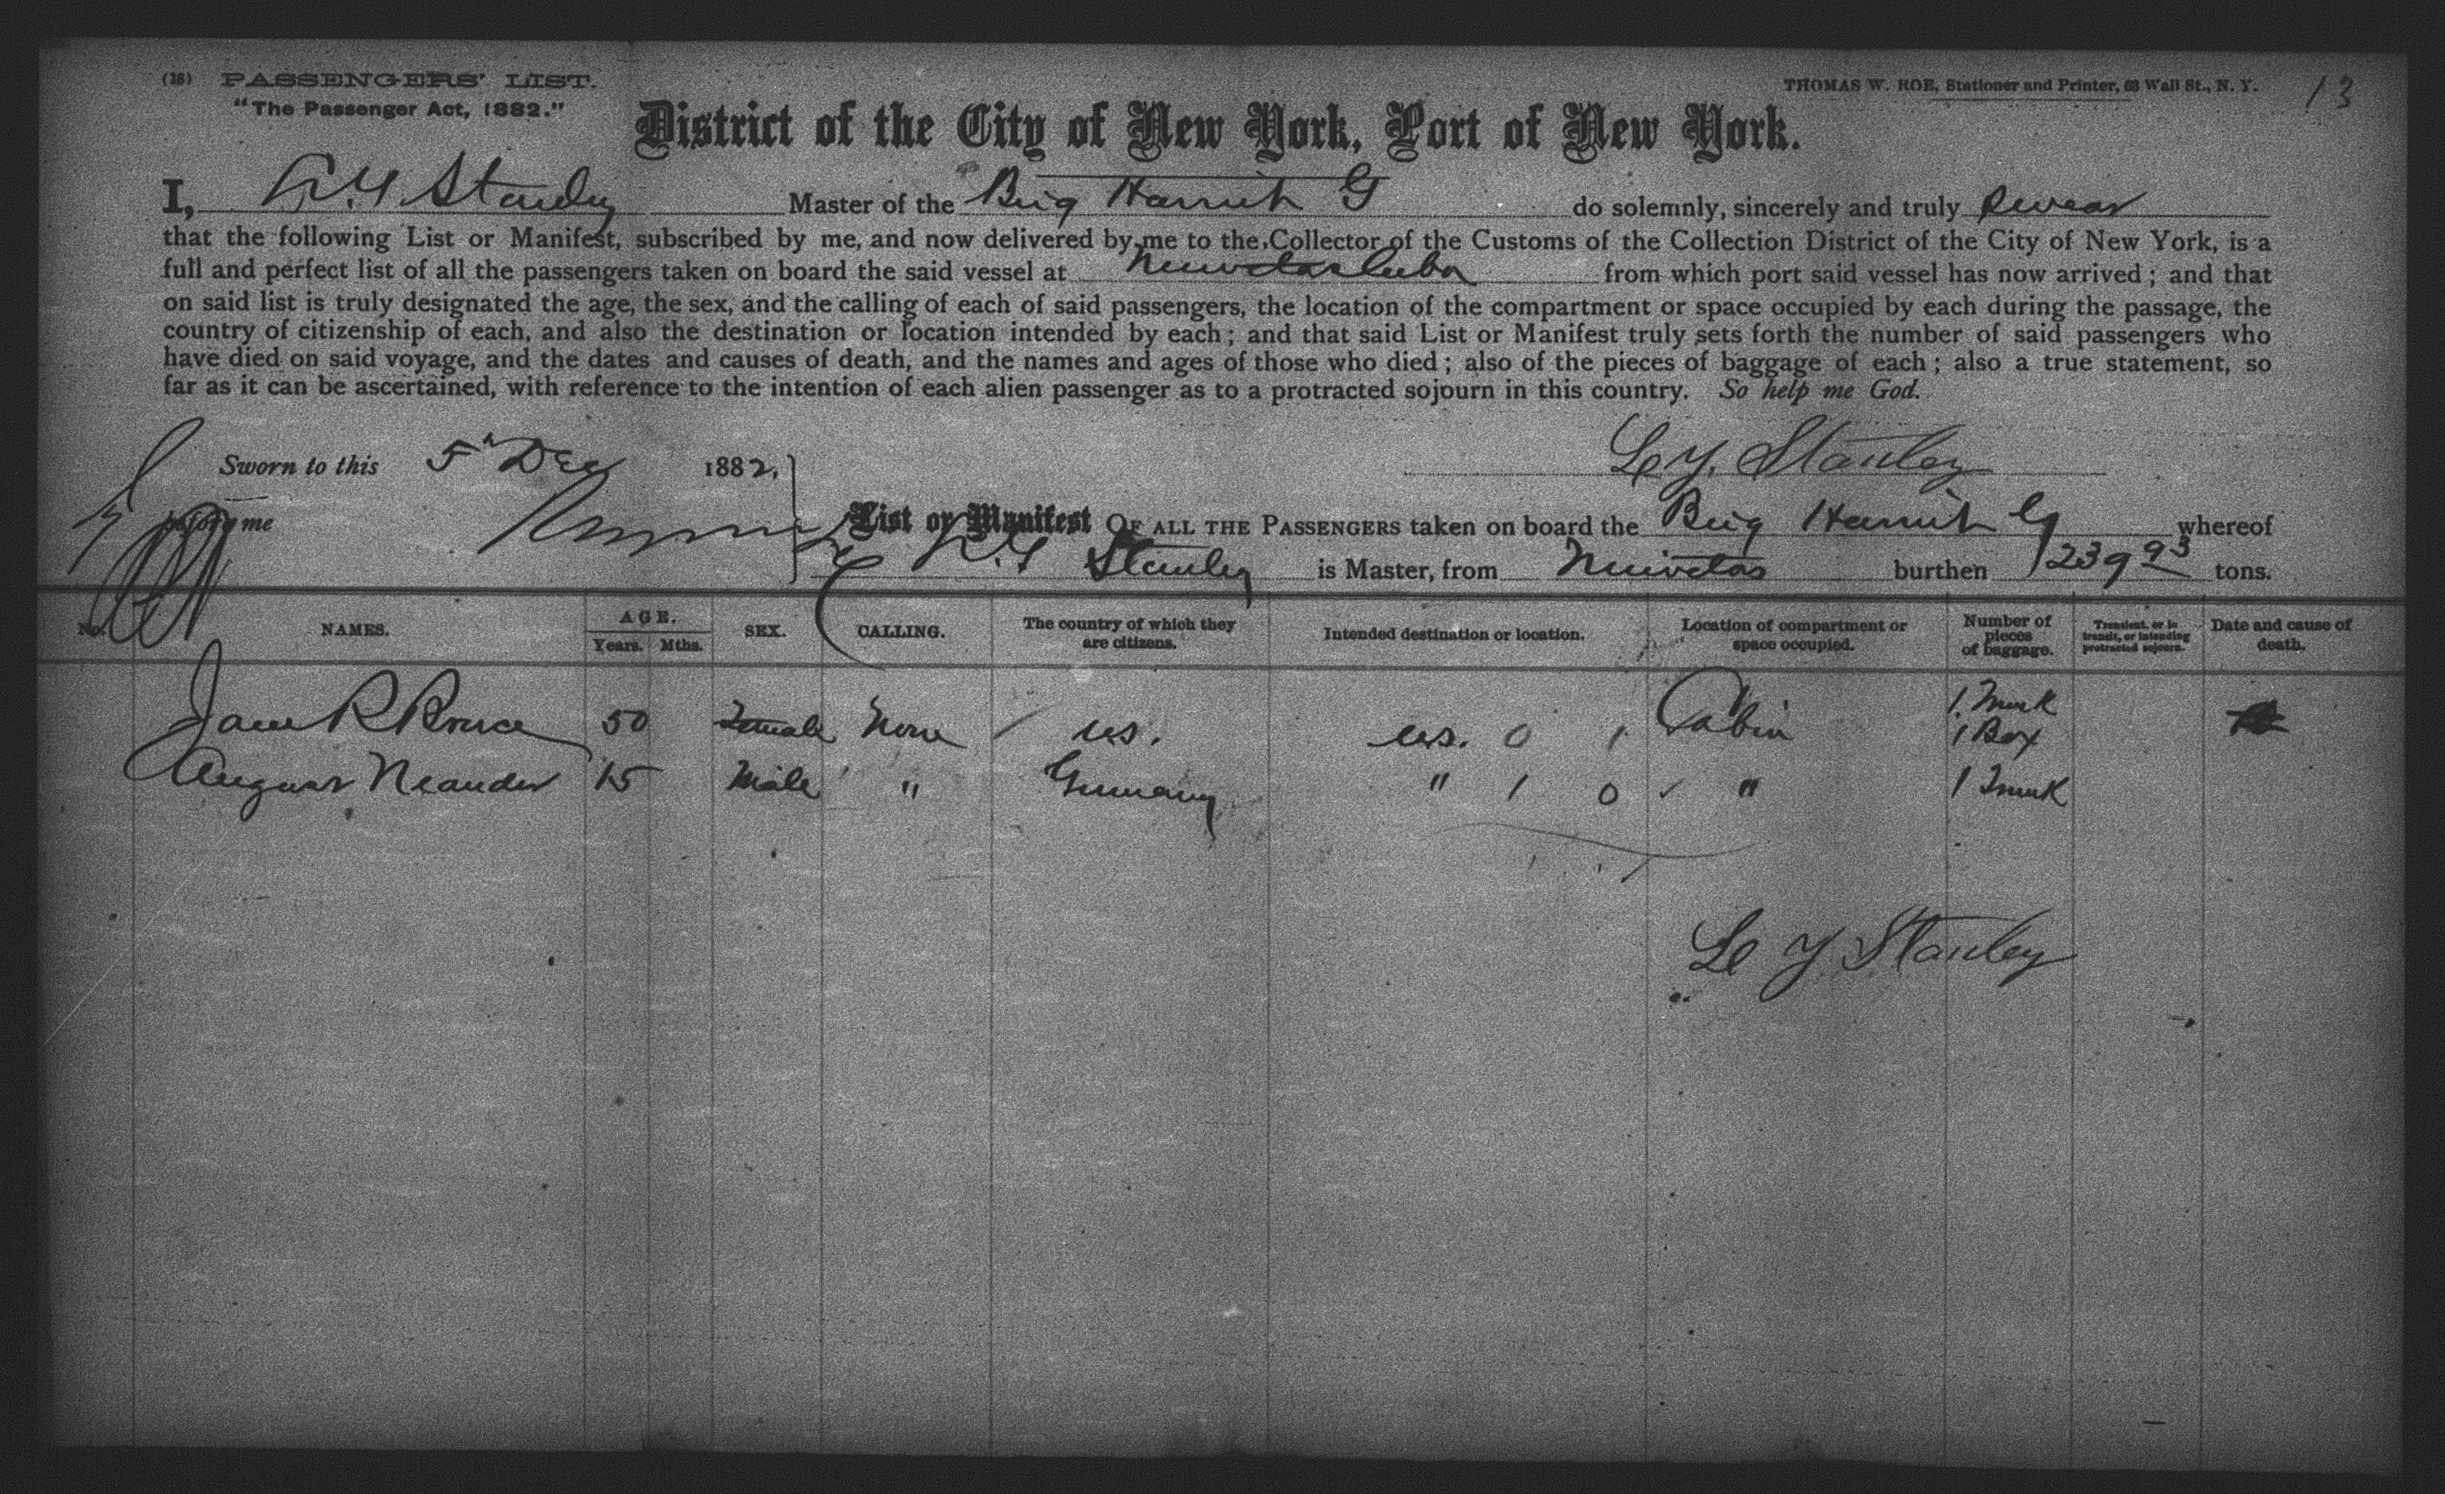 (16) PASSENGERS' LIST.
"The Passenger Act, 1882."
THOMAS W. ROE, Stationer and Printer, 63 Wall St., N. Y.
13
District of the City of New York, Port of New York.
I, Stanley Master of the Brig Harriet G do solemnly, sincerely and truly swear
that the following List or Manifest, subscribed by me, and now delivered by me to the Collector of the Customs of the Collection District of the City of New York, is a
full and perfect list of all the passengers taken on board the said vessel at Nuivetas Cuba from which port said vessel has now arrived; and that
on said list is truly designated the age, the sex, and the calling of each of said passengers, the location of the compartment or space occupied by each during the passage, the
country of citizenship of each, and also the destination or location intended by each; and that said List or Manifest truly sets forth the number of said passengers who
have died on said voyage, and the dates and causes of death, and the names and ages of those who died; also of the pieces of baggage of each; also a true statement, so
far as it can be ascertained, with reference to the intention of each alien passenger as to a protracted sojourn in this country. So help me God.
Sworn to this 5 Dec 1882,
Y. Stanley
before me
List or Manifest OF ALL THE PASSENGERS taken on board the Brig Harriet G whereof
Stanley is Master, from Nuivetas burthen 239 93 tons.
No. NAMES. AGE. Years. Mths. SEX. CALLING. The country of which they are citizens. Intended destination or location. Location of compartment or space occupied. Number of pieces of baggage. Transient, or in transit, or intending protracted sojourn. Date and cause of death.
Jane R Bruce 50 Female None us. us. 0 1 Cabin 1 Trunk 1 Box
August Neander 15 Male " Germany " 1 0 " 1 Trunk
Y Stanley